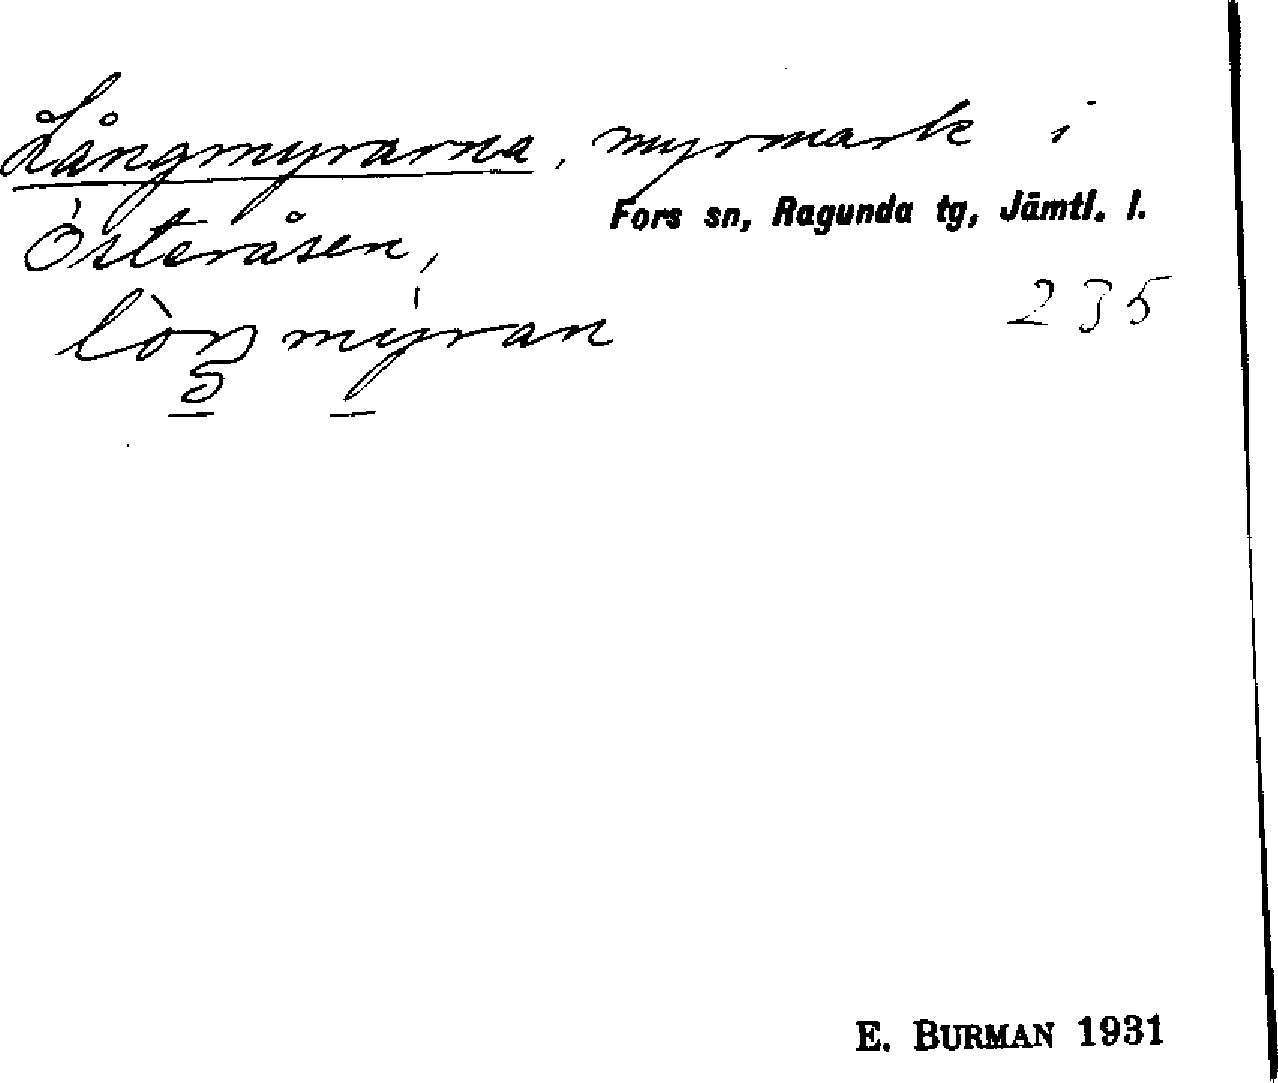 Långmyrarna, myrmark i
Österåsen, Fors sn, Ragunda tg, Jämtl. l.
235
E. BURMAN 1931